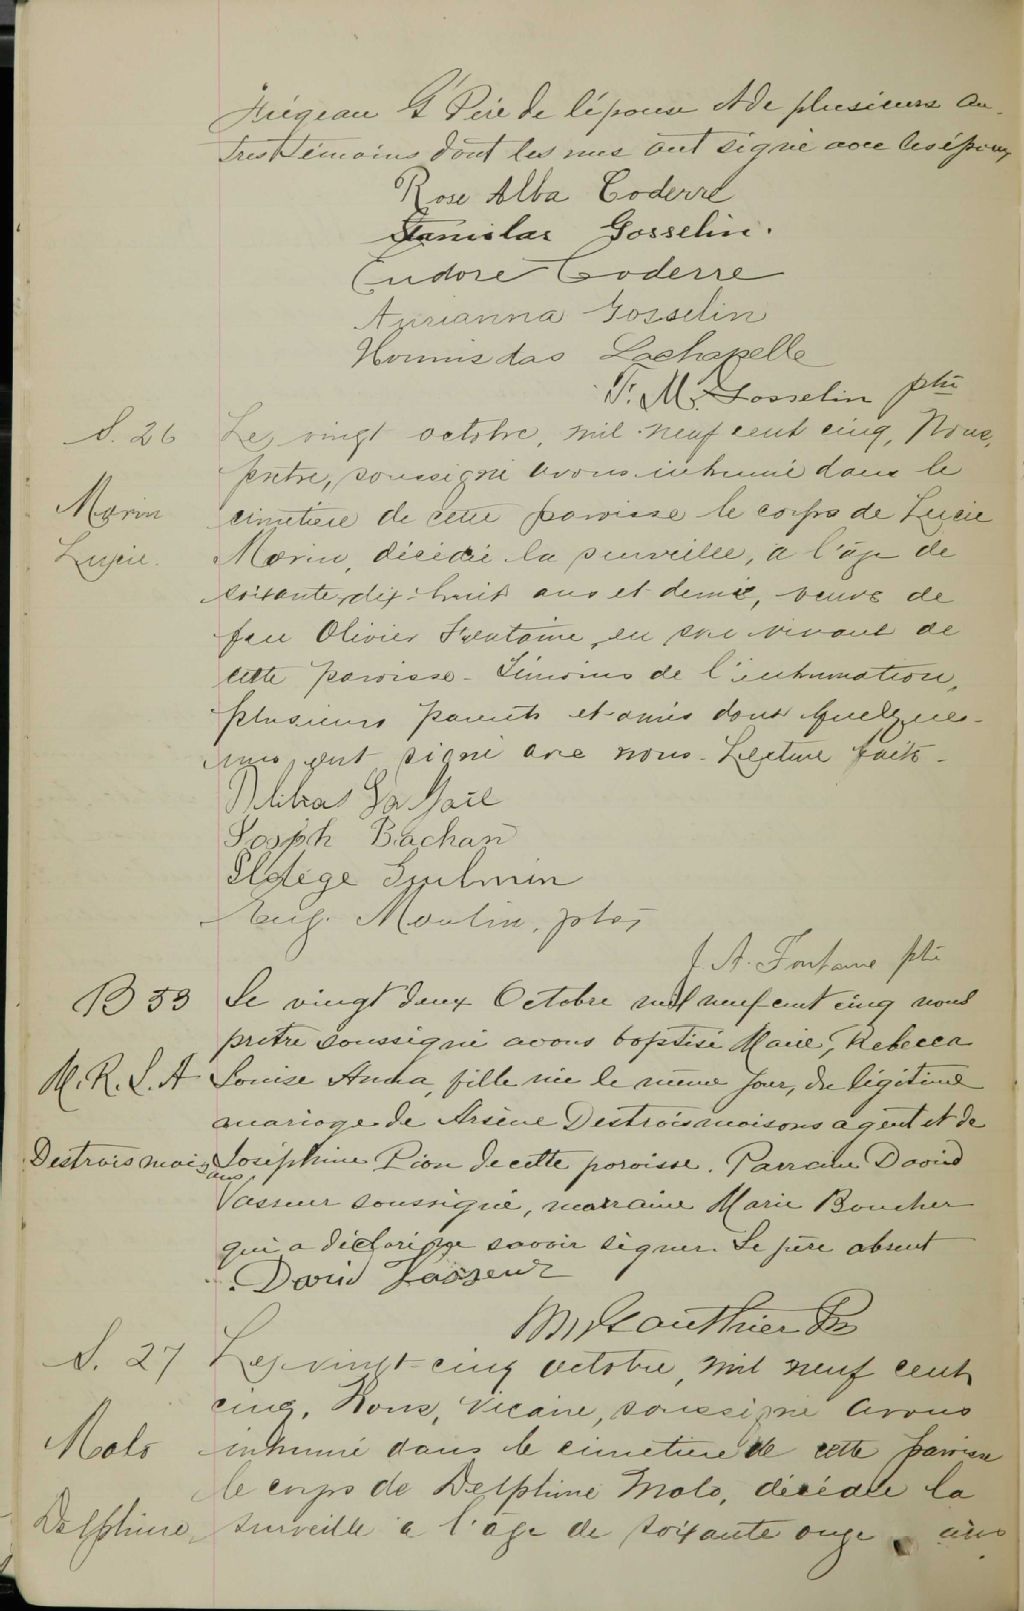 Trégeau Gd Père de l'épouse et de plusieurs au-
tres témoins dont les uns ont signé avec les époux
Rose Alba Coderre
Stanislas Gosselin.
Eudore Coderre
Aurianna Gosselin
Hormisdas Lachapelle
F. M. Gosselin ptre
S. 26
Le, vingt octobre, mil neuf cent cinq, Nous,
prêtre, soussigné avons inhumé dans le
Morin
cimetière de cette paroisse le corps de Lucie
Lucie.
Morin, décédée la surveille, à l'âge de
soixante-dix-huit ans et demie, veuve de
feu Olivier Fontaine, en son vivant de
cette paroisse - Témoins de l'inhumation,
plusieurs parents et amis dont quelques-
uns ont signé avec nous - Lecture faite -
Joseph Bachan
Eldège
Eug. Moulin, ptre,
J. A. Fontaine ptre
B 53
Le vingt deux Octobre mil neuf cent cinq nous
prêtre soussigné avons baptisé Marie, Rebecca
M. R. L. A
Louise Anna, fille née le même jour, du légitime
mariage de Arsène Destroismaisons agent et de
Destroismaisons
Joséphine Pion de cette paroisse. Parrain David
Vasseur soussigné, marraine Marie Boucher
qui a déclaré ne savoir signer. Le père absent
David Vasseur
Gauthier Ptre
S. 27
Le, vingt-cinq octobre, mil neuf cent
cinq, Nous, Vicaire, soussigné avons
Malo
inhumé dans le cimetière de cette paroisse
le corps de Delphine Malo, décédée la
Delphine
surveille à l'âge de soixante onze ans